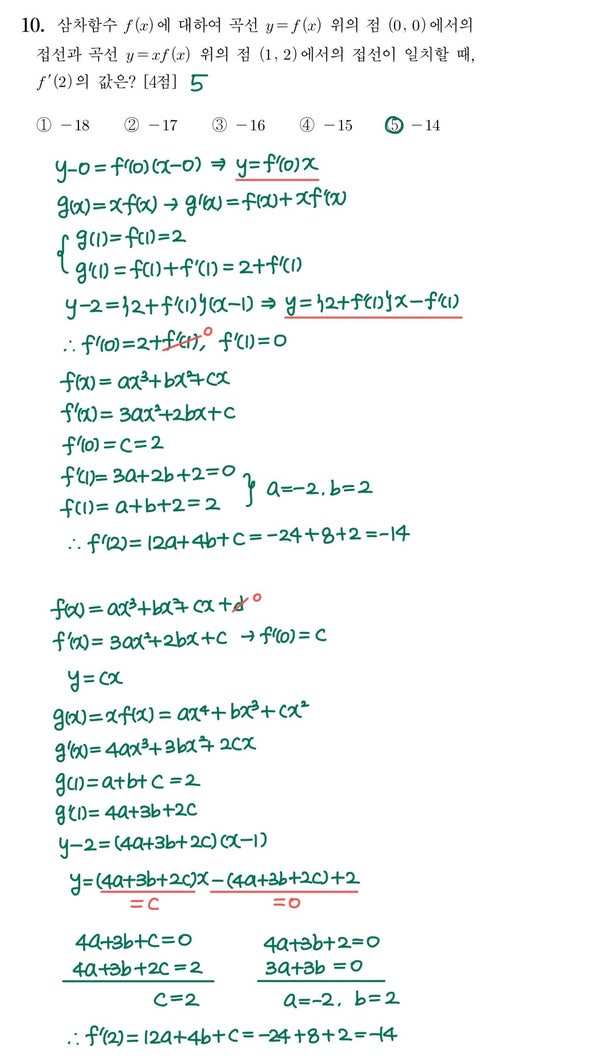 10. 삼차함수 f(x)에 대하여 곡선 y=f(x) 위의 점 (0, 0)에서의
접선과 곡선 y=xf(x) 위의 점 (1, 2)에서의 접선이 일치할 때,
f′(2)의 값은? [4점] 5
① −18 ② −17 ③ −16 ④ −15 ⑤ −14
y−0=f′(0)(x−0) ⇒ y=f′(0)x
g(x)=xf(x) → g′(x)=f(x)+xf′(x)
{ g(1)=f(1)=2
g′(1)=f(1)+f′(1)=2+f′(1)
y−2={2+f′(1)}(x−1) ⇒ y={2+f′(1)}x−f′(1)
∴ f′(0)=2+f′(1), 0 f′(1)=0
f(x)=ax³+bx²+cx
f′(x)=3ax²+2bx+c
f′(0)=c=2
f′(1)=3a+2b+2=0
f(1)=a+b+2=2 } a=−2, b=2
∴ f′(2)=12a+4b+c=−24+8+2=−14
f(x)=ax³+bx²+cx+d 0
f′(x)=3ax²+2bx+c → f′(0)=c
y=cx
g(x)=xf(x)=ax⁴+bx³+cx²
g′(x)=4ax³+3bx²+2cx
g(1)=a+b+c=2
g′(1)=4a+3b+2c
y−2=(4a+3b+2c)(x−1)
y=(4a+3b+2c)x−(4a+3b+2c)+2
=c =0
4a+3b+c=0 4a+3b+2=0
4a+3b+2c=2 3a+3b=0
c=2 a=−2, b=2
∴ f′(2)=12a+4b+c=−24+8+2=−14